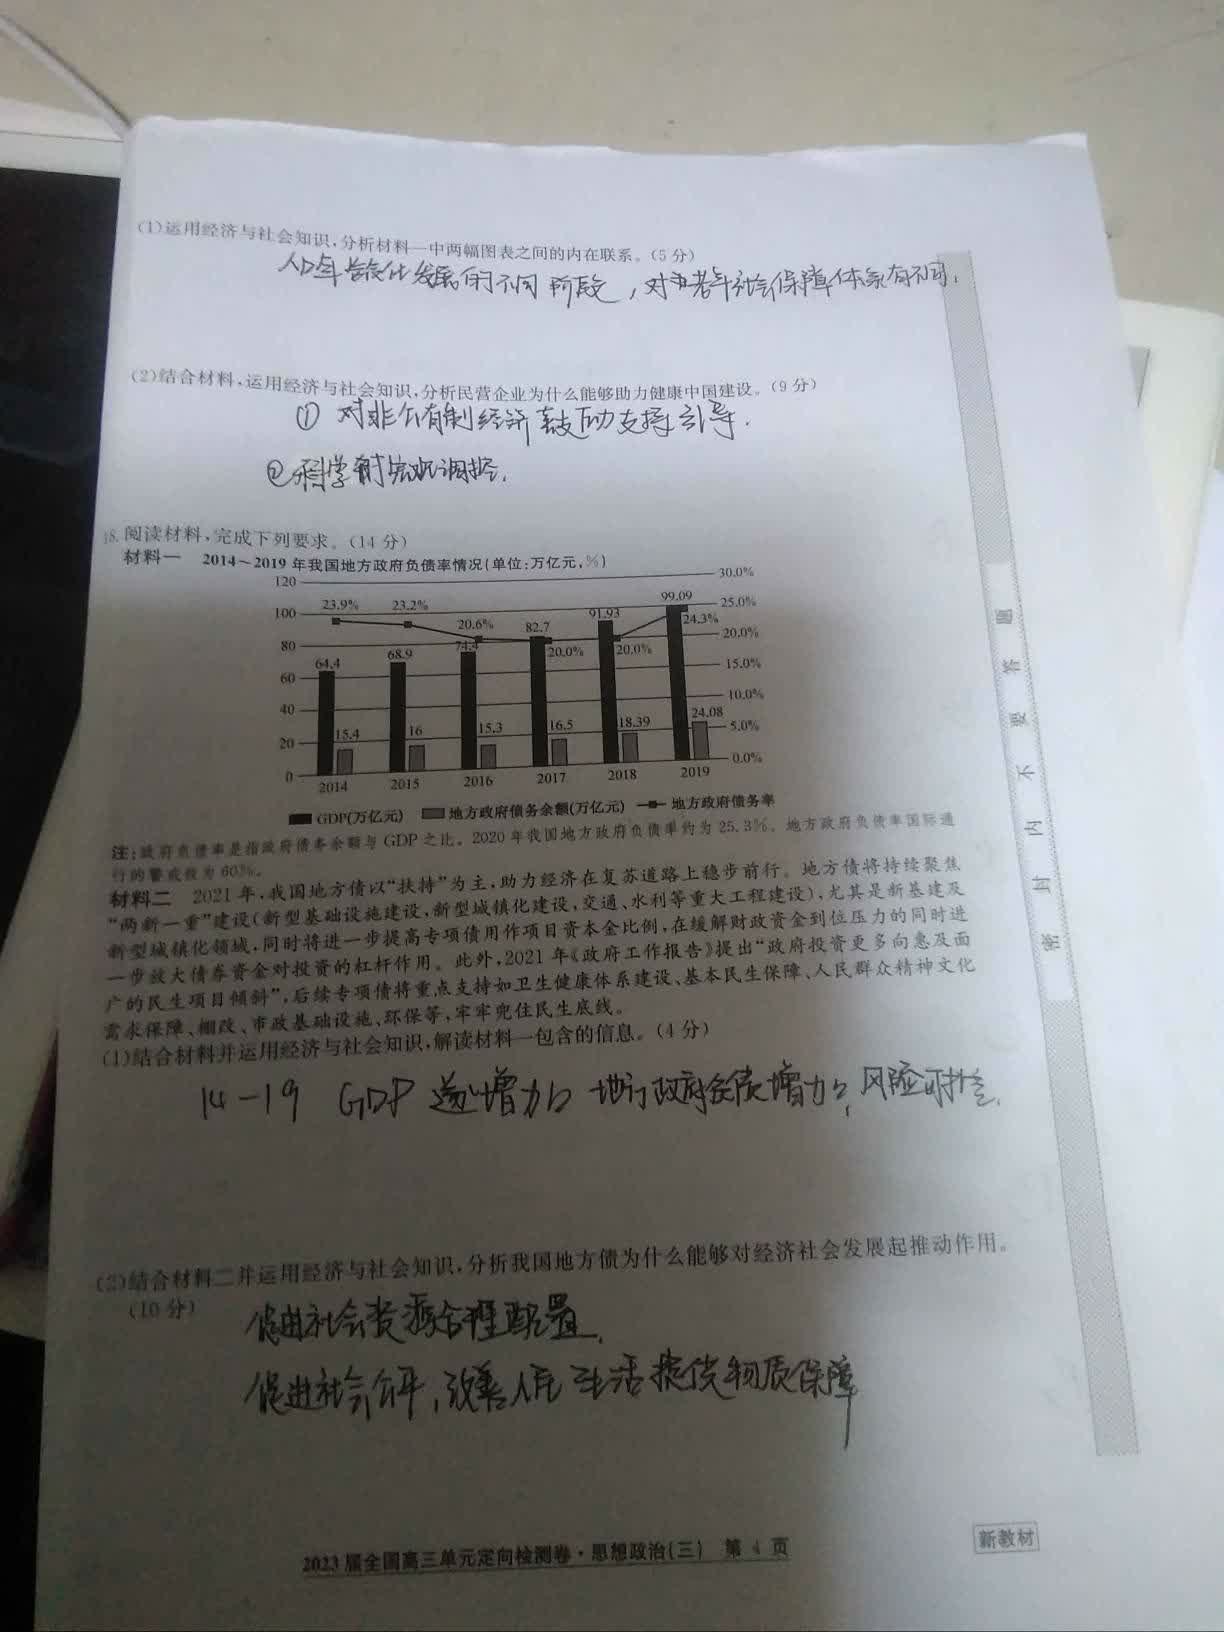 (1)运用经济与社会知识,分析材料一中两幅图表之间的内在联系。(5分)
人口年龄化发展的不同阶段,对养老年社会保障体系有不同.
(2)结合材料,运用经济与社会知识,分析民营企业为什么能够助力健康中国建设。(9分)
① 对非公有制经济鼓励支持引导.
②科学的宏观调控.
18.阅读材料,完成下列要求。(14分)
材料一 2014～2019年我国地方政府负债率情况(单位:万亿元,%)
120 30.0%
100 25.0%
80 20.0%
60 15.0%
40 10.0%
20 5.0%
0 0.0%
23.9% 23.2% 20.6% 20.0% 20.0% 24.3%
64.4 68.9 74.4 82.7 91.93 99.09
15.4 16 15.3 16.5 18.39 24.08
2014 2015 2016 2017 2018 2019
GDP(万亿元) 地方政府债务余额(万亿元) 地方政府债务率
注:政府负债率是指政府债务余额与GDP之比。2020年我国地方政府负债率约为25.3%。地方政府负债率国际通
行的警戒线为60%。
材料二 2021年,我国地方债以“扶持”为主,助力经济在复苏道路上稳步前行。地方债将持续聚焦
“两新一重”建设(新型基础设施建设,新型城镇化建设,交通、水利等重大工程建设),尤其是新基建及
新型城镇化领域,同时将进一步提高专项债用作项目资本金比例,在缓解财政资金到位压力的同时进
一步放大债券资金对投资的杠杆作用。此外,2021年《政府工作报告》提出“政府投资更多向惠及面
广的民生项目倾斜”,后续专项债将重点支持如卫生健康体系建设、基本民生保障、人民群众精神文化
需求保障、棚改、市政基础设施、环保等,牢牢兜住民生底线。
(1)结合材料并运用经济与社会知识,解读材料一包含的信息。(4分)
14-19 GDP 逐渐增加 地方政府负债增加,风险可控.
(2)结合材料二并运用经济与社会知识,分析我国地方债为什么能够对经济社会发展起推动作用。
(10分)
促进社会资源合理配置.
促进社会公平,改善人民生活提供物质保障
2023届全国高三单元定向检测卷·思想政治(三) 第4页
新教材
密 封 内 不 要 答 题